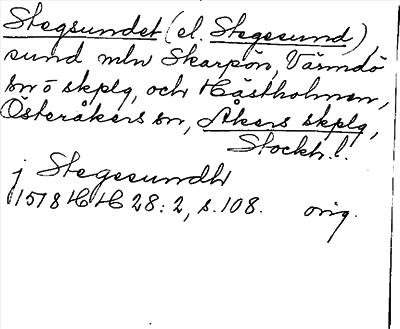 Stegsundet (el. Stegesund),
sund mln Skarpön, Värmdö
sn o skplg, och Hästholmen,
Österåkers sn, Åkers skplg,
Stockh. l.
j Stegesundh
1518 HH 28:2, s. 108. orig.